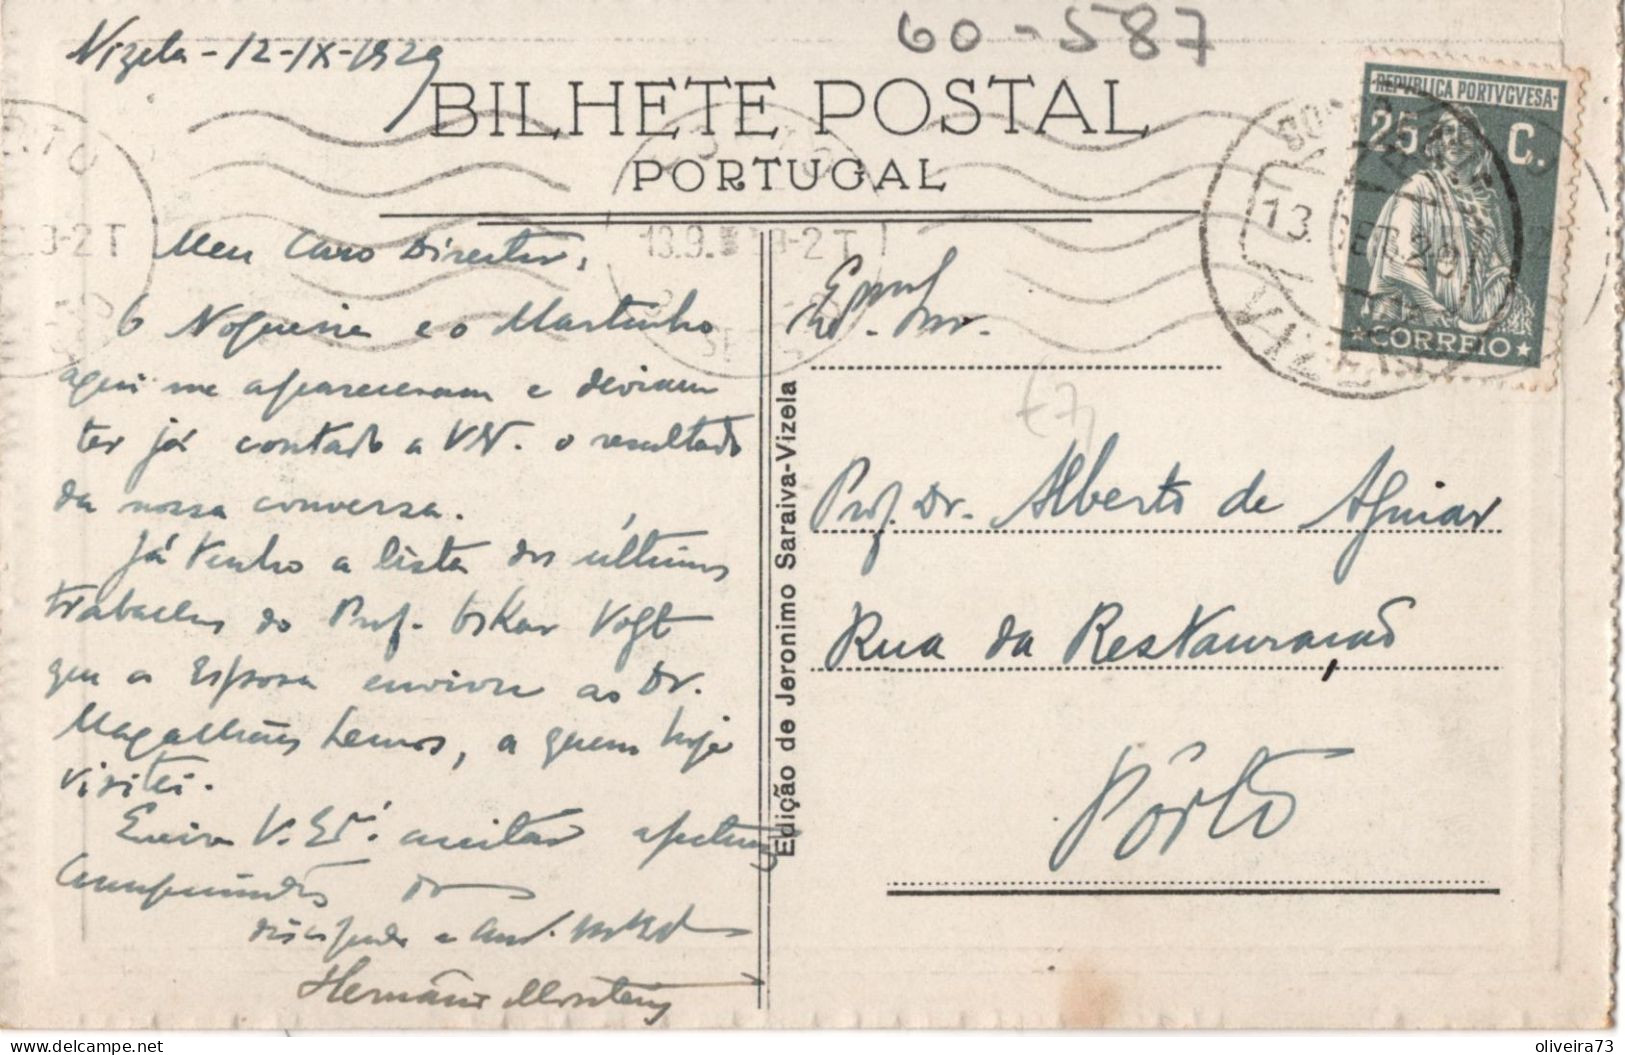 60-587
Vizela - 12-IX-1929
BILHETE POSTAL
PORTUGAL
REPVBLICA PORTVGVESA
25 C.
CORREIO
13 SET. 29
VIZELA
13.9. 3-2 T
Meu Caro Director,
O Nogueira e o Martinho
aqui me appareceram e deviam
ter já contado a V. o resultado
da nossa conversa.
Já tenho a lista dos últimos
trabalhos do Prof. Oskar Vogt
que a Esposa enviou ao Dr.
Magalhães Lemos, a quem hoje
visitei.
Queira V. Exª. aceitar
cumprimentos do
discípulo e
Hernâni Monteiro
Edição de Jeronimo Saraiva-Vizela
Exmo
Snr.
Prof. Dr. Alberto de Aguiar
Rua da Restauração
Pôrto
oliveira73
delcampe.net